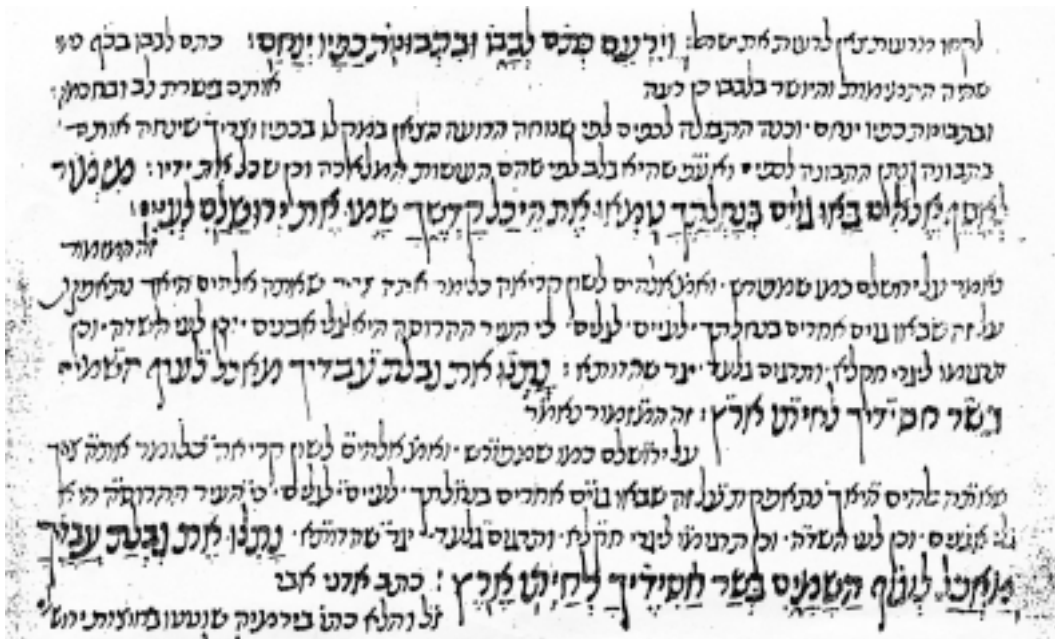 לקחו מרעות צאן לרעות את ישראל: וַיִּרְעֵם כְּתֹם לְבָבוֹ וּבִתְבוּנֹת כַּפָּיו יַנְחֵם: כתם לבבו בכף כמו
שהיה התמימות והיושר בלבבו כן רעה אותם בישרת לב ובתמים:
ובתבונות כפיו ינחם · וכנה התבונה לכפים לפי הרועה הצאן במקלו בכפיו וצריך שינחה אותם
בתבונה ונתן התבונה לכפים ואע"פ שהיא בלב לפי שהם העושות המלאכה וכן שכל את ידיו: מזמור
לְאָסָף אֱלֹהִים בָּאוּ גוֹיִם בְּנַחֲלָתֶךָ טִמְּאוּ אֶת הֵיכַל קָדְשֶׁךָ שָׂמוּ אֶת יְרוּשָׁלַם לְעִיִּים:
זה המזמור
נאמר על ירושלם כמו שמפורש · ואמר אלהים לשון קריאה כלומר אתה שאתה אלהים היאך נתאפקת
על זה שבאו גוים אחרים בנחלתך · לעיים · לגלים · כי העיר ההרוסה היא גלי אבנים · וכן לעי השדה · וכן
תרגומו לגרי חקלא · ותרגום גלעד · יגר שהדותא: נָתְנוּ את נבלת עבדיך מאכל לעוף השמים
בְּשַׂר חסידיך לחיתו ארץ: זה המזמור נאמר
על ירושלם כמו שמפורש · ואמר אלהים לשון קריאה כלומר אתה
שאתה אלהים היאך נתאפקת על זה שבאו גוים אחרים בנחלתך · לעיים · לגלים · כי העיר ההרוסה היא
גלי אבנים · וכן לעי השדה · וכן תרגומו לגרי חקלא · ותרגום גלעד · יגר שהדותא · נָתְנוּ אֶת נִבְלַת עֲבָדֶיךָ
מַאֲכָל לְעוֹף הַשָּׁמָיִם בְּשַׂר חֲסִידֶיךָ לְחַיְתוֹ אָרֶץ: כתב אדני אבי
ז"ל והלא כתוב בירמיה